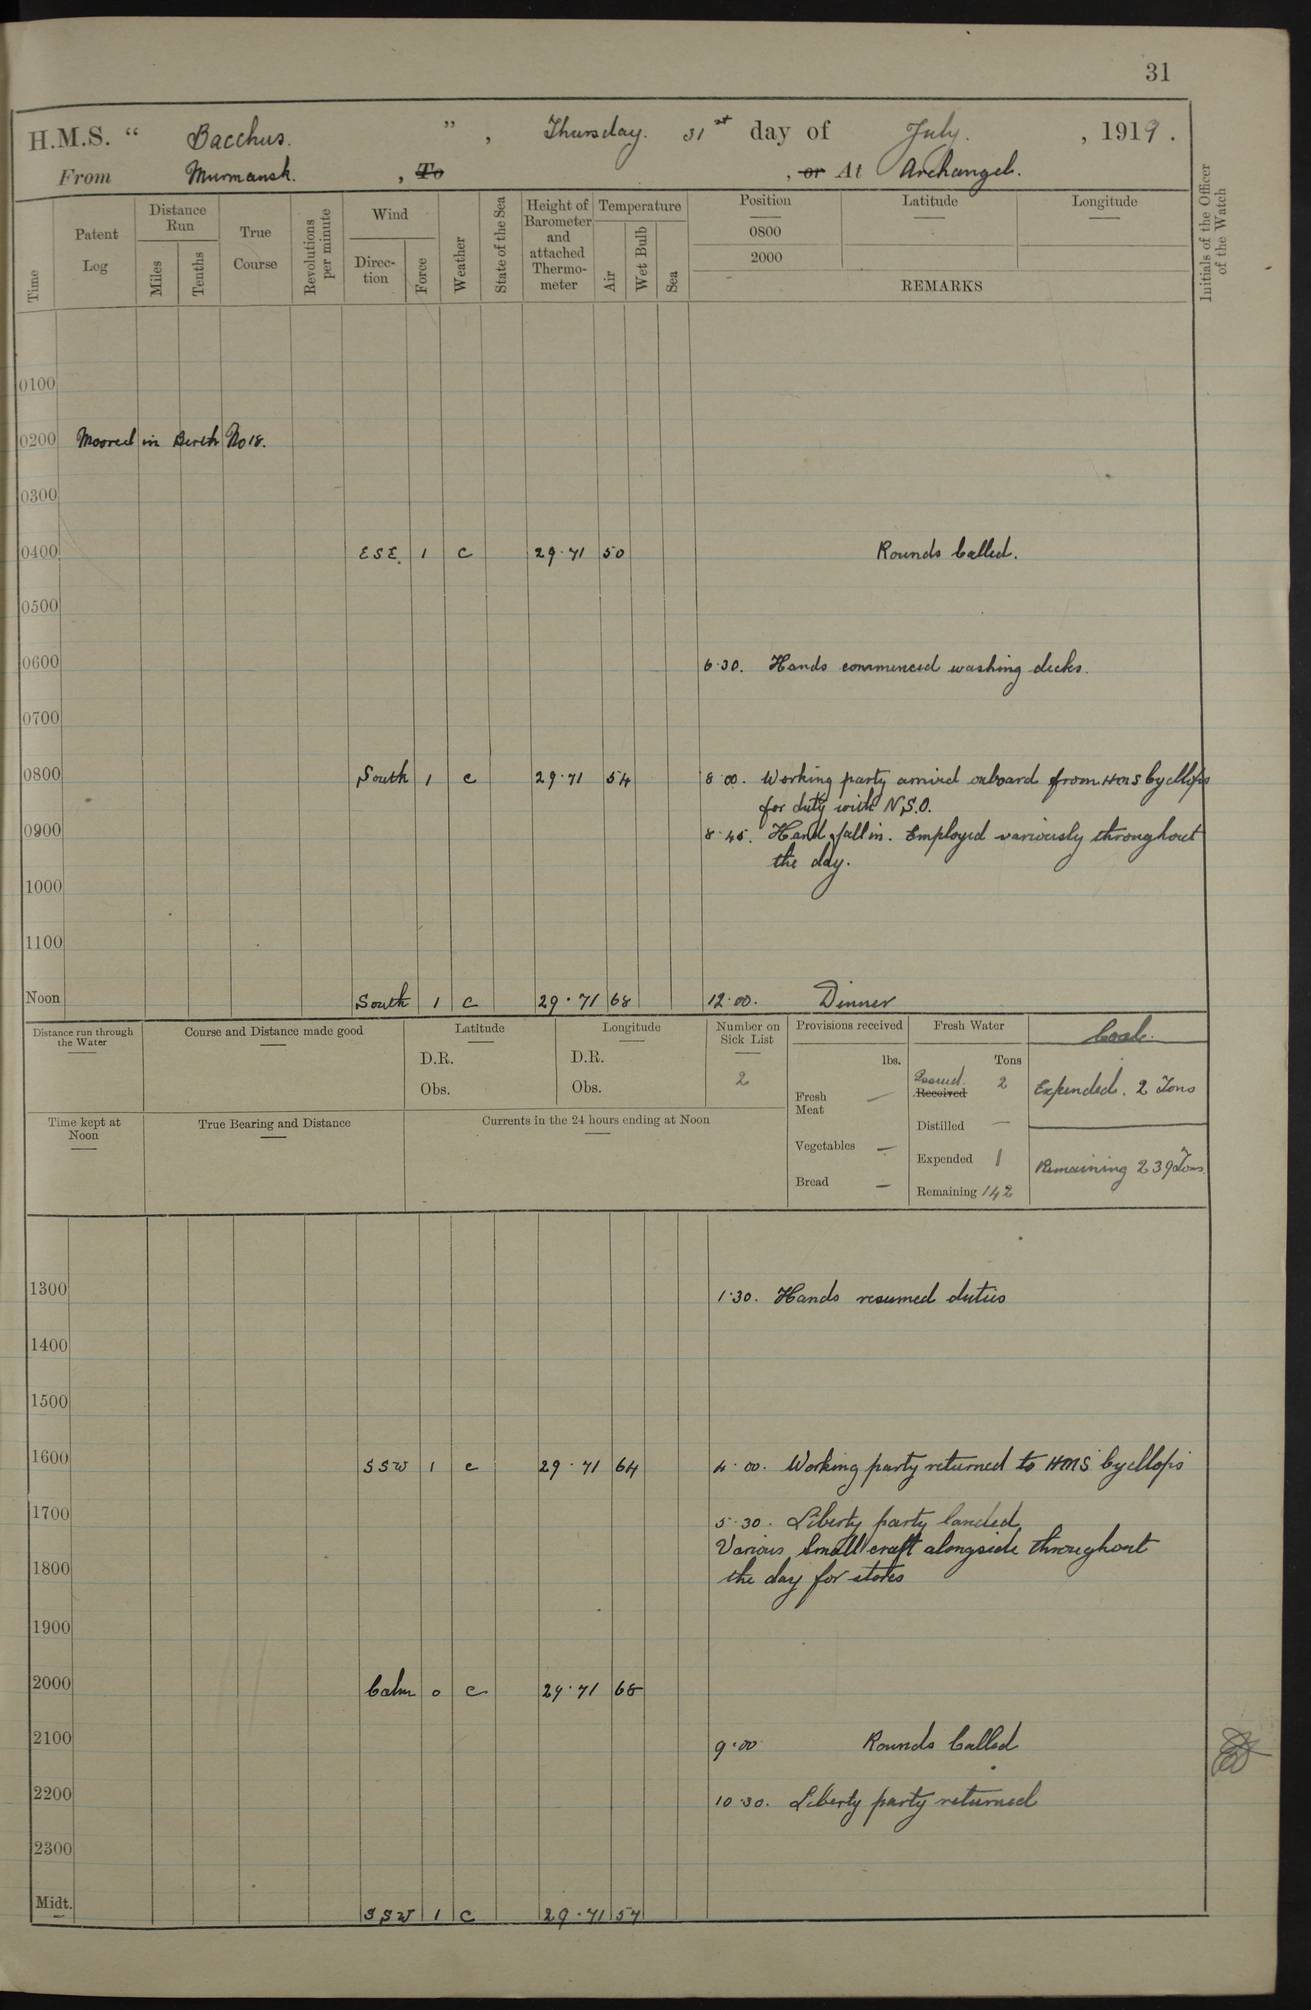 31
H.M.S. “ Bacchus. ” , Thursday. 31st day of July. , 1919.
From Murmansk. , To , or At Archangel.
Time
Patent Log
Distance Run
Miles
Tenths
True Course
Revolutions per minute
Wind
Direction
Force
Weather
State of the Sea
Height of Barometer and attached Thermometer
Temperature
Air
Wet Bulb
Sea
Position
0800
2000
Latitude
Longitude
REMARKS
Initials of the Officer of the Watch
0100
0200 Moored in Berth No 18.
0300
0400 ESE. 1 c 29.71 50 Rounds Called.
0500
0600 6.30. Hands commenced washing decks.
0700
0800 South 1 c 29.71 54 8.00. Working party arrived onboard from HMS Cyclops
for duty with N.S.O.
0900 8.45. Hands fall in. Employed variously throughout
the day.
1000
1100
Noon South 1 c 29.71 68 12.00. Dinner
Distance run through the Water
Course and Distance made good
Latitude
D.R.
Obs.
Longitude
D.R.
Obs.
Number on Sick List
2
Provisions received
lbs.
Fresh Meat —
Vegetables —
Bread —
Fresh Water
Tons
Issued 2
Received
Distilled —
Expended 1
Remaining 142
Coal.
Expended. 2 Tons
Remaining 239 Tons
Time kept at Noon
True Bearing and Distance
Currents in the 24 hours ending at Noon
1300 1.30. Hands resumed duties
1400
1500
1600 SSW 1 c 29.71 64 4.00. Working party returned to HMS Cyclops
1700 5.30. Liberty party landed
Various small craft alongside throughout
1800 the day for stores
1900
2000 Calm 0 c 29.71 68
2100 9.00 Rounds Called
2200 10.30. Liberty party returned
2300
Midt. SSW 1 c 29.71 57